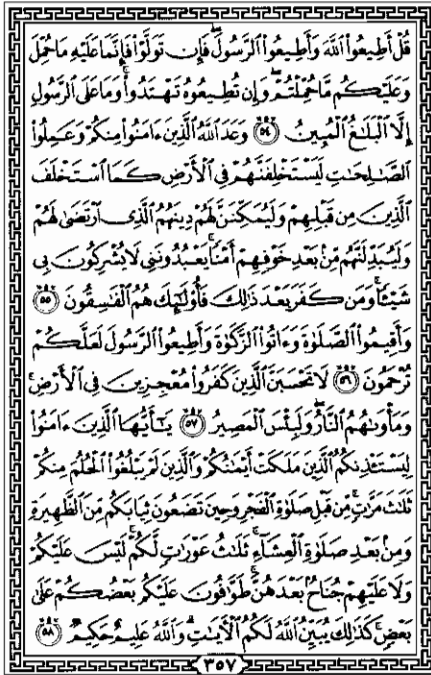 قُلْ أَطِيعُوا۟ ٱللَّهَ وَأَطِيعُوا۟ ٱلرَّسُولَ ۖ فَإِن تَوَلَّوْا۟ فَإِنَّمَا عَلَيْهِ مَا حُمِّلَ
وَعَلَيْكُم مَّا حُمِّلْتُمْ ۖ وَإِن تُطِيعُوهُ تَهْتَدُوا۟ ۚ وَمَا عَلَى ٱلرَّسُولِ
إِلَّا ٱلْبَلَٰغُ ٱلْمُبِينُ ٥٤ وَعَدَ ٱللَّهُ ٱلَّذِينَ ءَامَنُوا۟ مِنكُمْ وَعَمِلُوا۟
ٱلصَّٰلِحَٰتِ لَيَسْتَخْلِفَنَّهُمْ فِى ٱلْأَرْضِ كَمَا ٱسْتَخْلَفَ
ٱلَّذِينَ مِن قَبْلِهِمْ وَلَيُمَكِّنَنَّ لَهُمْ دِينَهُمُ ٱلَّذِى ٱرْتَضَىٰ لَهُمْ
وَلَيُبَدِّلَنَّهُم مِّنۢ بَعْدِ خَوْفِهِمْ أَمْنًا ۚ يَعْبُدُونَنِى لَا يُشْرِكُونَ بِى
شَيْـًٔا ۚ وَمَن كَفَرَ بَعْدَ ذَٰلِكَ فَأُو۟لَٰٓئِكَ هُمُ ٱلْفَٰسِقُونَ ٥٥
وَأَقِيمُوا۟ ٱلصَّلَوٰةَ وَءَاتُوا۟ ٱلزَّكَوٰةَ وَأَطِيعُوا۟ ٱلرَّسُولَ لَعَلَّكُمْ
تُرْحَمُونَ ٥٦ لَا تَحْسَبَنَّ ٱلَّذِينَ كَفَرُوا۟ مُعْجِزِينَ فِى ٱلْأَرْضِ ۚ
وَمَأْوَىٰهُمُ ٱلنَّارُ ۖ وَلَبِئْسَ ٱلْمَصِيرُ ٥٧ يَٰٓأَيُّهَا ٱلَّذِينَ ءَامَنُوا۟
لِيَسْتَـْٔذِنكُمُ ٱلَّذِينَ مَلَكَتْ أَيْمَٰنُكُمْ وَٱلَّذِينَ لَمْ يَبْلُغُوا۟ ٱلْحُلُمَ مِنكُمْ
ثَلَٰثَ مَرَّٰتٍ ۚ مِّن قَبْلِ صَلَوٰةِ ٱلْفَجْرِ وَحِينَ تَضَعُونَ ثِيَابَكُم مِّنَ ٱلظَّهِيرَةِ
وَمِنۢ بَعْدِ صَلَوٰةِ ٱلْعِشَآءِ ۚ ثَلَٰثُ عَوْرَٰتٍ لَّكُمْ ۚ لَيْسَ عَلَيْكُمْ
وَلَا عَلَيْهِمْ جُنَاحٌۢ بَعْدَهُنَّ ۚ طَوَّٰفُونَ عَلَيْكُم بَعْضُكُمْ عَلَىٰ
بَعْضٍ ۚ كَذَٰلِكَ يُبَيِّنُ ٱللَّهُ لَكُمُ ٱلْءَايَٰتِ ۗ وَٱللَّهُ عَلِيمٌ حَكِيمٌ ٥٨
٣٥٧